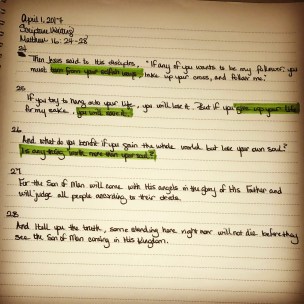 April 1, 2017
Scripture Writing
Matthew 16: 24-28
24
Then Jesus said to His disciples, "If any of you wants to be my follower, you
must turn from your selfish ways, take up your cross, and follow me."
25
If you try to hang onto your life, you will lose it. But if you give up your life
for my sake, you will save it.
26
And what do you benefit if you gain the whole world but lose your own soul?
Is anything worth more than your soul?
27
For the Son of Man will come with His angels in the glory of His Father and
will judge all people according to their deeds.
28
And I tell you the truth, some standing here right now will not die before they
see the Son of Man coming in His Kingdom.